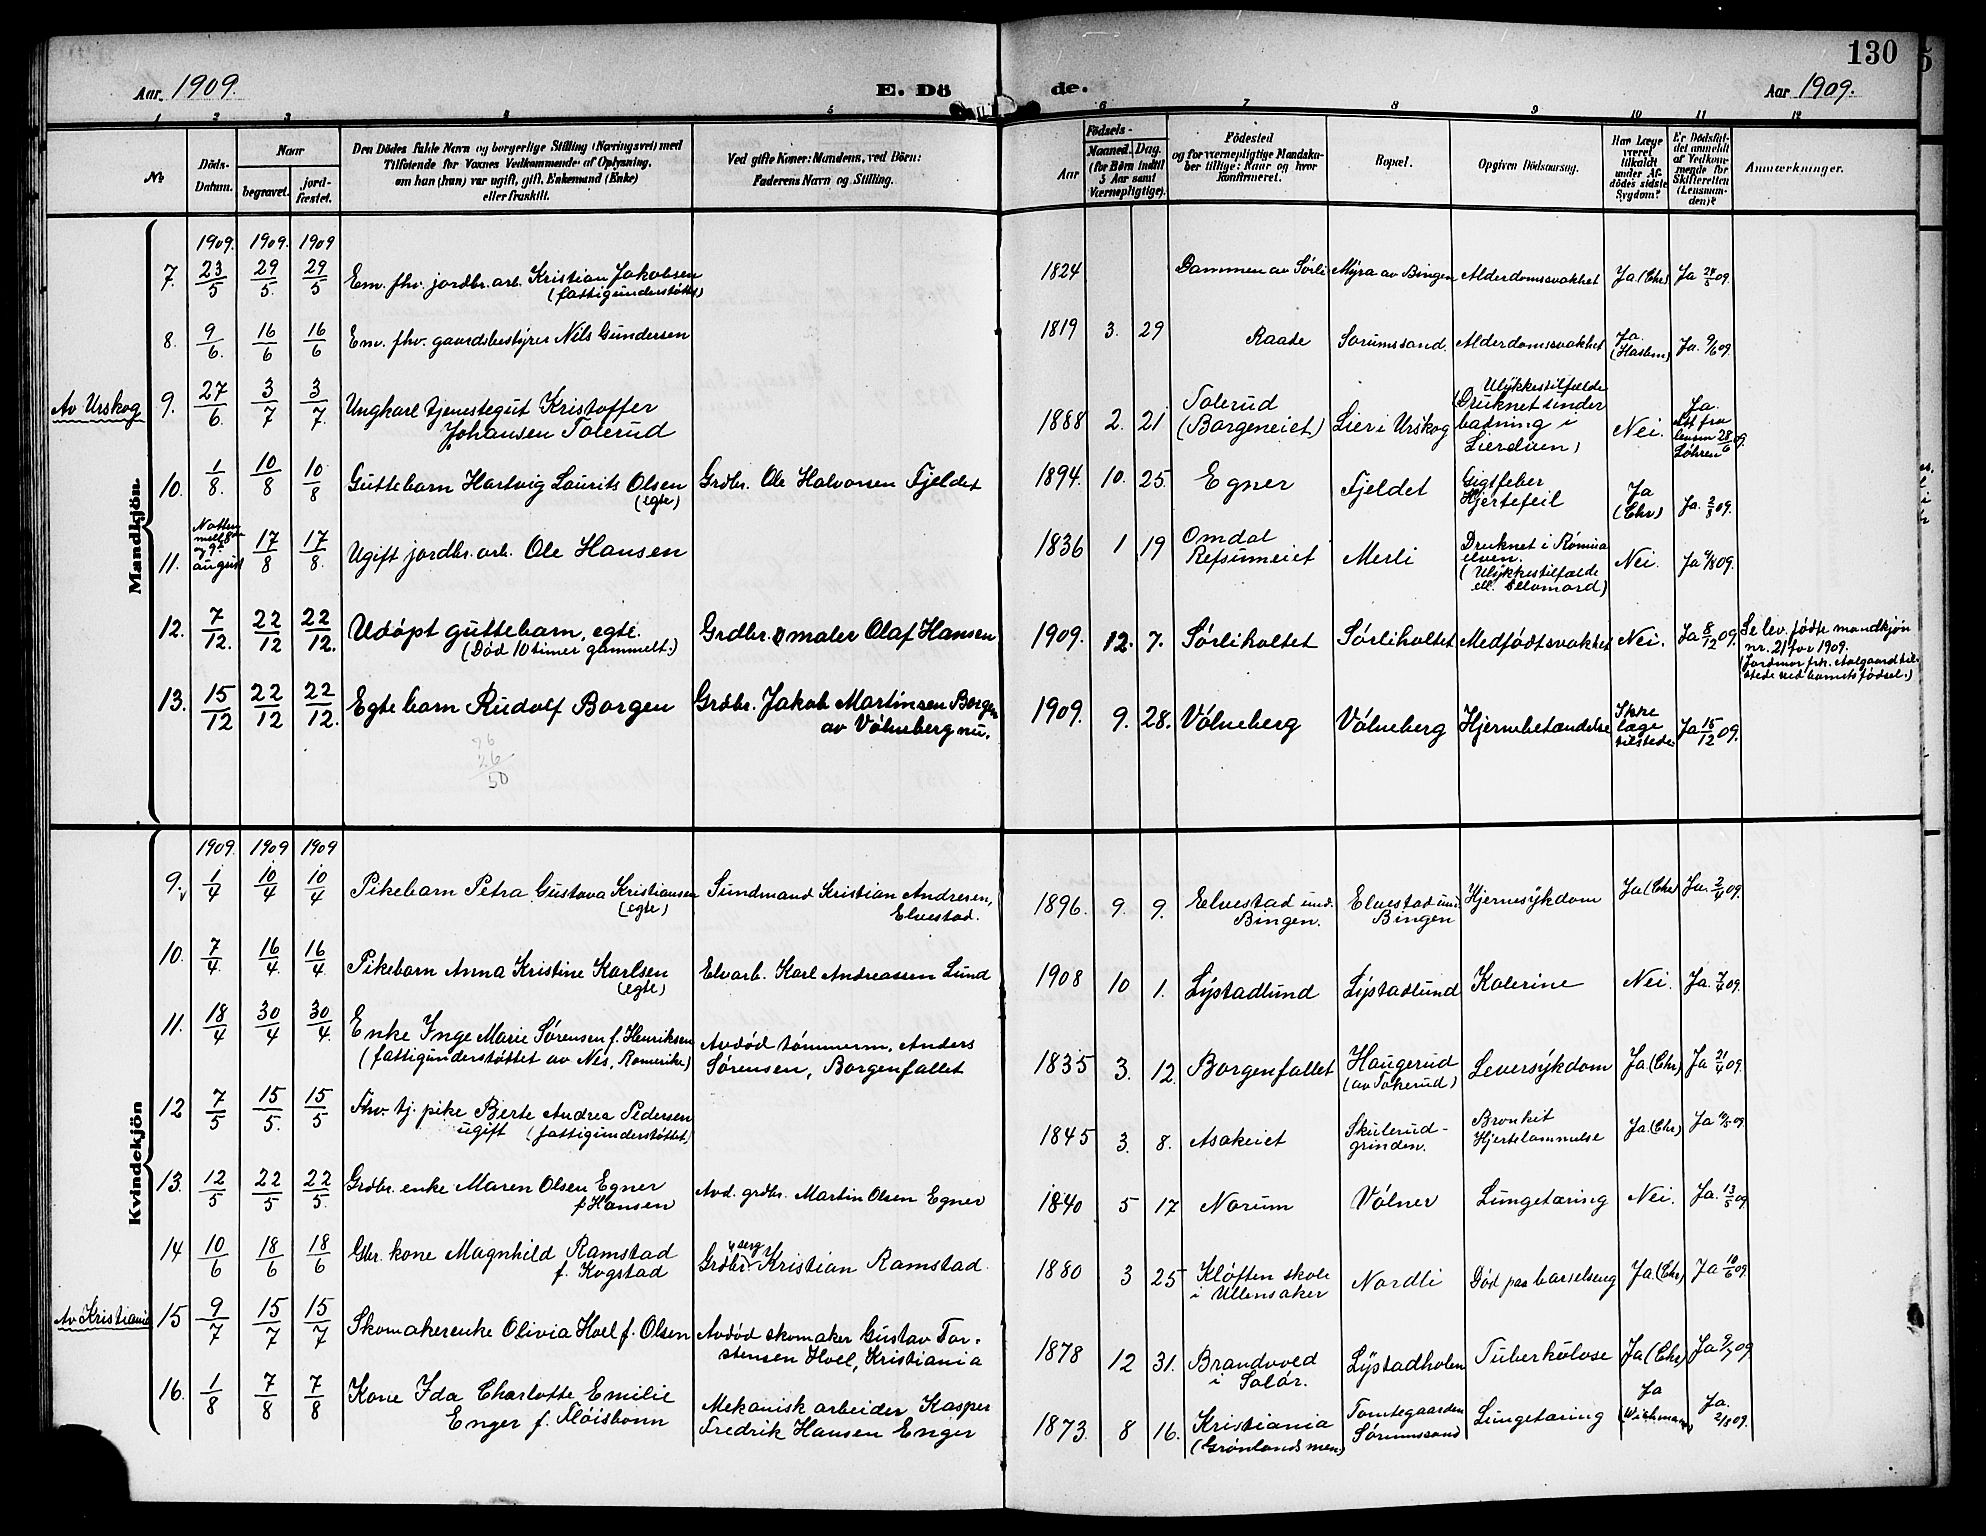 130
Aar 1909.
E. Dö
de.
Aar 1909.
1 2 3 4 5 6 7 8 9 10 11 12
No
Döds-
Datum.
Naar
begravet.
jord-
fæstet.
Den Dödes fulde Navn og borgerlige Stilling (Næringsvei) med
Tilföiende for Voxnes Vedkommende af Oplysning,
om han (hun) var ugift, gift, Enkemand (Enke)
eller fraskilt.
Ved gifte Koner: Mandens, ved Börn:
Faderens Navn og Stilling.
Födsels-
Aar
Maaned. Dag.
(for Börn indtil
5 Aar samt
Værnepligtige).
Födested
og for værnepligtige Mandska-
ber tillige: Naar og hvor
konfirmeret.
Bopæl.
Opgiven Dödsaarsag.
Har Læge
været
tilkaldt
under Af-
dödes sidste
Sygdom?
Er Dödsfal-
det anmeldt
af Vedkom-
mende for
Skifteretten
(Lensman-
den)?
Anmærkninger.
Mandkjön.
1909. 1909. 1909
7. 23/5 29/5. 29/5 Em. fhv. jordbr. arb. Kristian Jakobsen
(fattigunderstøttet)
1824 Dammen av Sørli Myra av Bingen Alderdomssvakhet Ja (Chr) Ja 24/5 09.
8. 9/6. 16/6 16/6 Em. fhv. gaardsbestyrer Nils Gundersen
1819 3. 29 Raade Sørumssand. Alderdomssvakhet Ja. (Haslem) Ja. 9/6 09.
Av Urskog
9. 27/6. 3/7 3/7. Ungkarl tjenestegut Kristoffer
Johansen Tolerud
1888 2. 21 Tolerud
(Borgeneiet) Lier i Urskog
Ulykkestilfælde
(Druknet under
badning i
Lierduen)
Nei.
Ja.
Att fra
lensm
Løhren 28/6 09.
10. 1/8. 10/8 10/8 Guttebarn Hartvig Laurits Olsen
(egte)
Grdbr. Ole Halvorsen Fjeldet
1894. 10. 25. Egner Fjeldet Gigtfeber
Hjertefeil
Ja
(Chr) Ja. 2/8 09.
11. Natten
mell. 8de
og 9de
august
17/8 17/8. Ugift jordbr. arb. Ole Hansen
1836 1 19 Omdal
Refsumeiet Merli
Druknet i Rømua
elven.
(Ulykkestilfælde
ell. selvmord)
Nei. Ja 9/8 09.
12. 7/12. 22/12 22/12. Udøpt guttebarn, egte.
(Død 10 timer gammelt.)
Grdbr. & maler Olaf Hansen
1909. 12. 7. Sørliholtet Sørliholtet Medfødt svakhet Nei. Ja 8/12 09.
Se lev. fødte mandkjøn
nr. 21 for 1909.
(Jordmor frk. Aalgaard til-
stede ved barnets fødsel.)
13. 15/12 22/12 22/12. Egte barn Rudolf Borgen
Grdbr. Jakob Martinsen Borgen
av Vølneberg nu.
1909. 9. 28. Vølneberg Vølneberg Hjernebetændelse
Ikke
læge
tilstede.
Ja 15/12 09.
26
50
Kvindekjön
1909. 1909 1909
9. 1/4 10/4 10/4 Pikebarn Petra Gustava Kristiansen
(egte)
Sundmand Kristian Andresen,
Elvestad.
1896. 9. 9. Elvestad und.
Bingen. Elvestad und.
Bingen Hjernesykdom Ja (Chr) Ja. 2/4 09.
10. 7/4. 16/4. 16/4. Pikebarn Anna Kristine Karlsen
(egte)
Elvarb. Karl Andreassen Lund
1908 10 1. Lystadlund Lystadlund Kolerine Nei. Ja. 7/4 09.
11. 18/4 30/4 30/4. Enke Inge Marie Sørensen f. Henriksen
(fattigunderstøttet av Nes, Romerike)
Avdød tømmerm. Anders
Sørensen, Borgenfallet
1835 3. 12. Borgenfallet Haugerud
(av Tokerud) Leversykdom Ja (Chr) Ja 21/4 09.
12 7/5 15/5. 15/5 Fhv. tj. pike Berte Andrea Pedersen
ugift (fattigunderstøttet)
1845 3. 8. Asakeiet Skulerud-
grinden. Bronkit
Hjertelammelse Ja. (Chr) Ja 10/5 09
13. 12/5 22/5 22/5. Grdbr. enke Maren Olsen Egner
f Hansen
Avd. grdbr. Martin Olsen Egner
1840 5 17 Norum Vølner Lungetæring Nei. Ja. 13/5 09
14 10/6 18/6 18/6 Gbr. kone Magnhild Ramstad
f. Kogstad
Grdbr. serg Kristian Ramstad.
1880 3 25 Kløften skole
i Ullensaker Nordli Død paa barselseng Ja (Chr) Ja 10/6 09.
Av Kristiania
15 9/7 15/7 15/7 Skomakerenke Olivia Hoel f. Olsen
Avdød skomaker Gustav Tor-
stensen Hoel, Kristiania
1878 12 31. Brandvoed
i Solør. Lystadholen Tuberkulose Ja (Chr) Ja 9/7 09
16. 1/8 7/8 7/8 Kone Ida Charlotte Emilie
Enger f. Fløisbonn
Mekanisk arbeider Kasper
Fredrik Hansen Enger
1873. 8 16. Kristiania
(Grønlands men) Tomtegaarden
Sørumssand Lungetæring Ja
(Wichmann) Ja.
2/8 09.